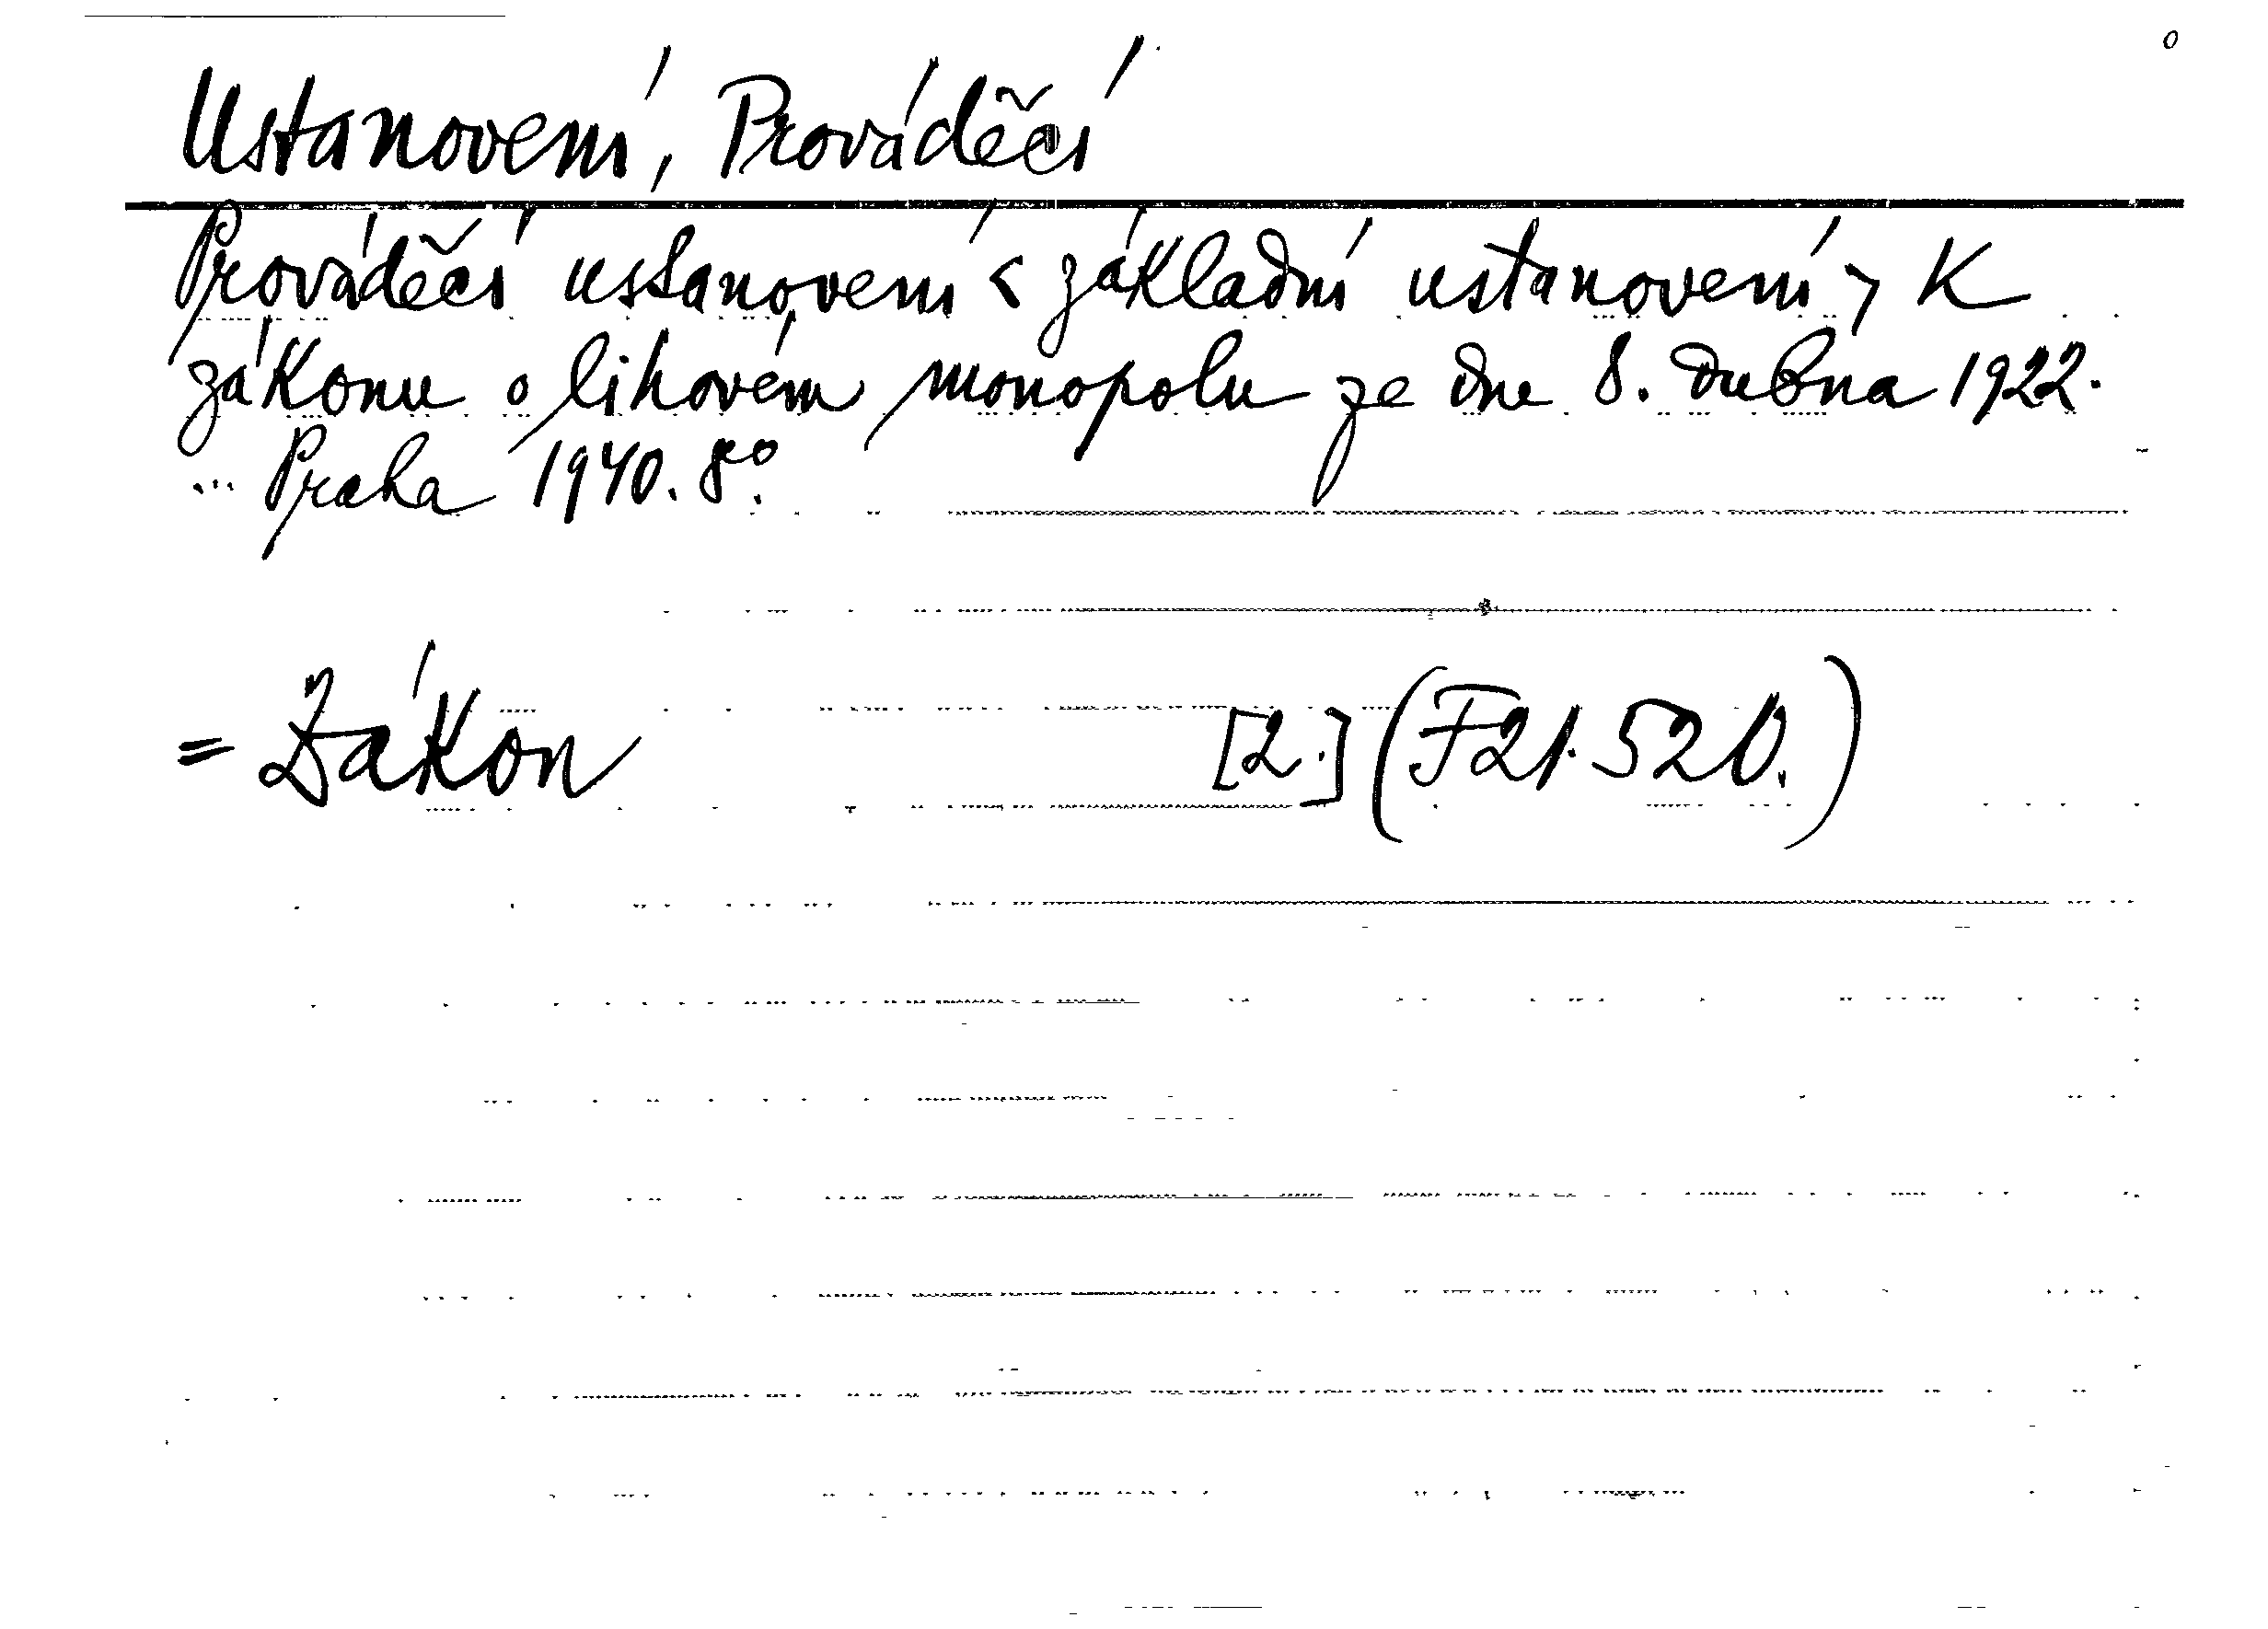 Ustanovení, Prováděcí
Prováděcí ustanovení < základní ustanovení > K
zákonu o lihovém monopolu ze dne 8. dubna 1922.
... Praha 1940. 8º.
= Zákon [2.] (F21.520.)